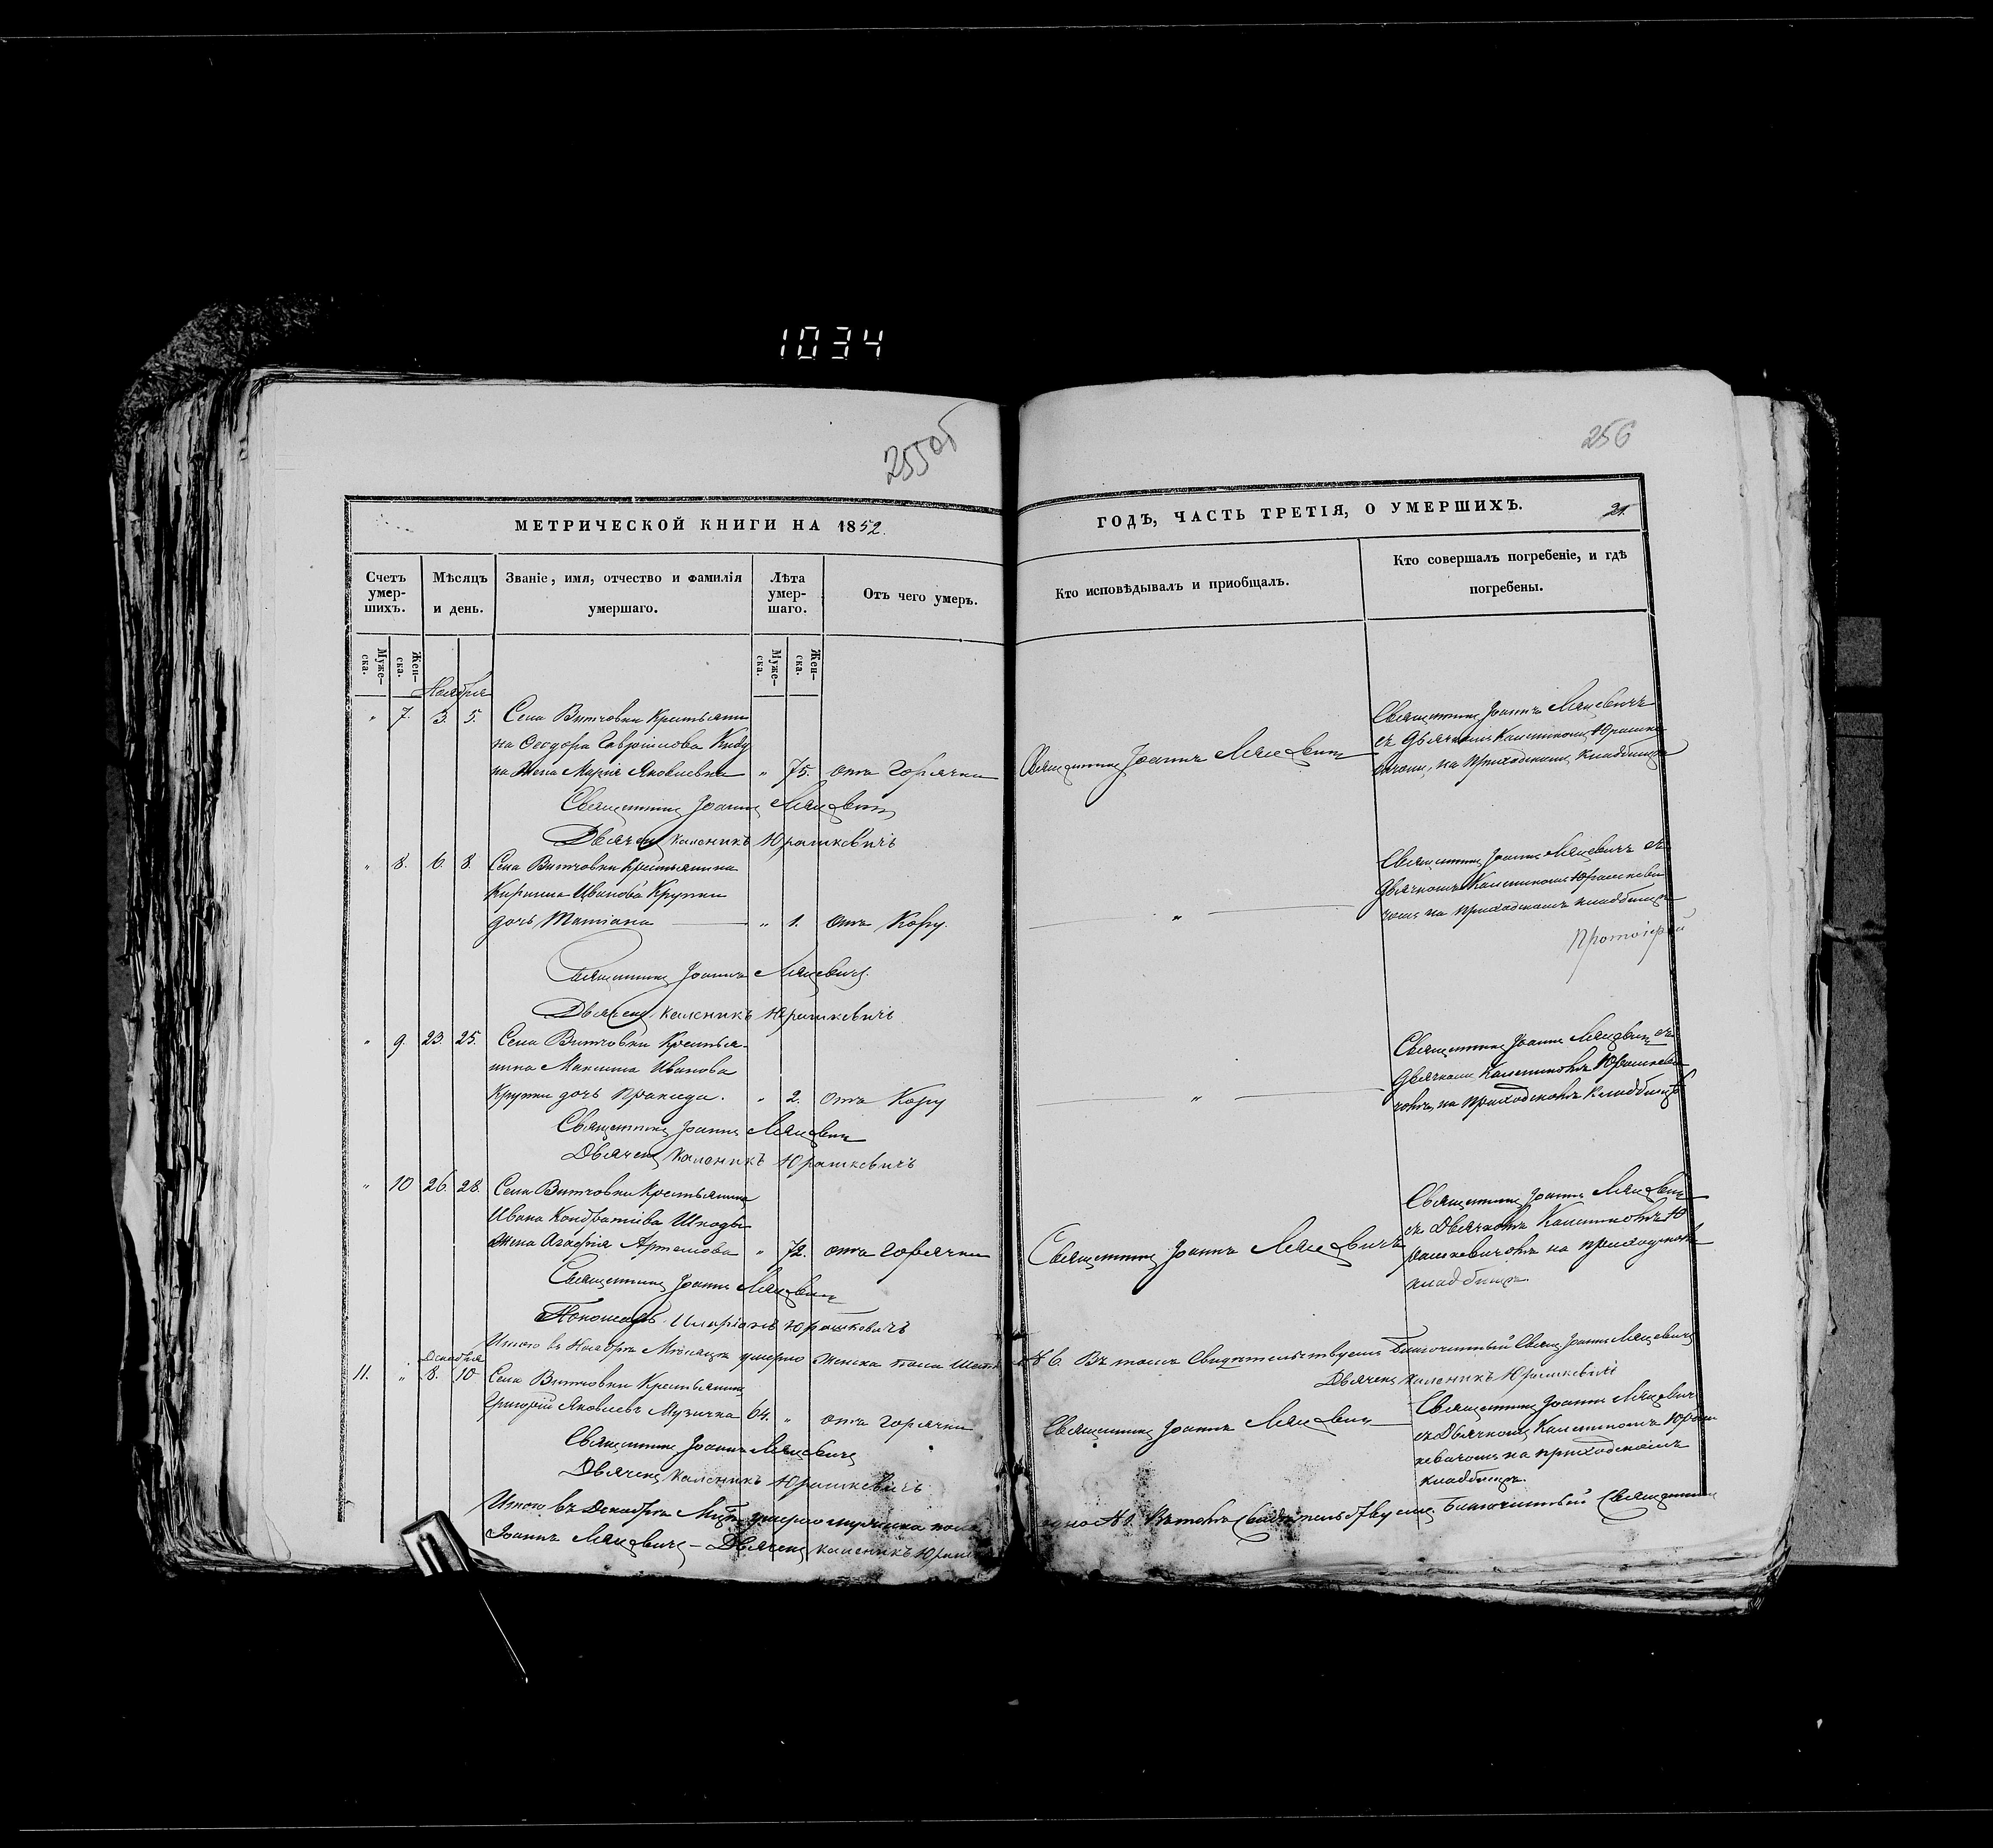 1034
255об
256
МЕТРИЧЕСКОЙ КНИГИ НА 1852.
ГОДЪ, ЧАСТЬ ТРЕТІЯ, О УМЕРШИХЪ.
21.
Счетъ умер-
шихъ.
Мѣсяцъ
и день.
Званіе, имя, отчество и фамилія
умершаго.
Лѣта
умер-
шаго.
Отъ чего умеръ.
Кто исповѣдывалъ и приобщалъ.
Кто совершалъ погребеніе, и гдѣ
погребены.
Муже-
ска.
Жен-
ска.
Муже-
ска.
Жен-
ска.
Ноября
" 7. 3. 5. Села Витчовки Крестьяни
на Ѳеодора Гаврилова
на Жена Марія Яковлевна " 75. отъ Горячки Священникъ Іоаннъ Мацевичъ
Священникъ Іоаннъ Мацевичъ
съ Дьячкомъ Калеником Юрашке
вичомъ, на приходскомъ кладбищѣ
Священникъ Іоаннъ Мацевичъ
Дьячекъ Каленикъ Юрашкевичъ
" 8. 6. 8. Села Витчовки Крестьянина
Кирилла Иванова Крупки
дочь Татіана " 1. Отъ Кору. "
Священникъ Іоаннъ Мацевичъ съ
Дьячкомъ Калеником Юрашкеви
чомъ на приходскомъ кладбищѣ
Протоіерей
Священникъ Іоаннъ Мацевичъ.
Дьячекъ Каленикъ Юрашкевичъ
" 9. 23. 25. Села Витчовки Крестья-
нина Максима Иванова
Крупки дочь Пракседа. " 2. Отъ Кору "
Священникъ Іоаннъ Мацевичъ съ
Дьячкомъ Каленикомъ Юрашкеви
чомъ, на приходскомъ кладбищѣ
Священникъ Іоаннъ Мацевичъ
Дьячекъ Каленикъ Юрашкевичъ
" 10 26. 28. Села Витчовки Крестьянина
Ивана Кондратіева Шкоды
Жена Агафія Артемова " 72. отъ горячки Священникъ Іоаннъ Мацевичъ
Священникъ Іоаннъ Мацевичъ
съ Дьячкомъ Каленикомъ Ю
рашкевичомъ на приходскомъ
кладбищѣ.
Священникъ Іоаннъ Мацевичъ
Пономарь Иларіонъ Юрашкевичъ
Итого въ Ноябрѣ Мѣсяцѣ умерло женска пола № 6. Въ томъ Свидѣтельствуемъ Благочинный Свящ. Іоаннъ Мацевичъ
Дьячекъ Каленикъ Юрашкевичъ
Декабря
11. " 8. 10 Села Витчовки Крестьянинъ
Григорій Яковлевъ Музичка 64. " отъ горячки Священникъ Іоаннъ Мацевичъ
Священникъ Іоаннъ Мацевичъ
съ Дьячкомъ Калеником Юраш
кевичомъ на приходскомъ
кладбищѣ.
Священникъ Іоаннъ Мацевичъ
Дьячекъ Каленикъ Юрашкевичъ
Итого въ Декабрѣ Мцѣ умерло мужска пола одно № 1. Въ томъ Свидѣтельствуемъ Благочинный Священникъ
Іоаннъ Мацевичъ - Дьячекъ Каленикъ